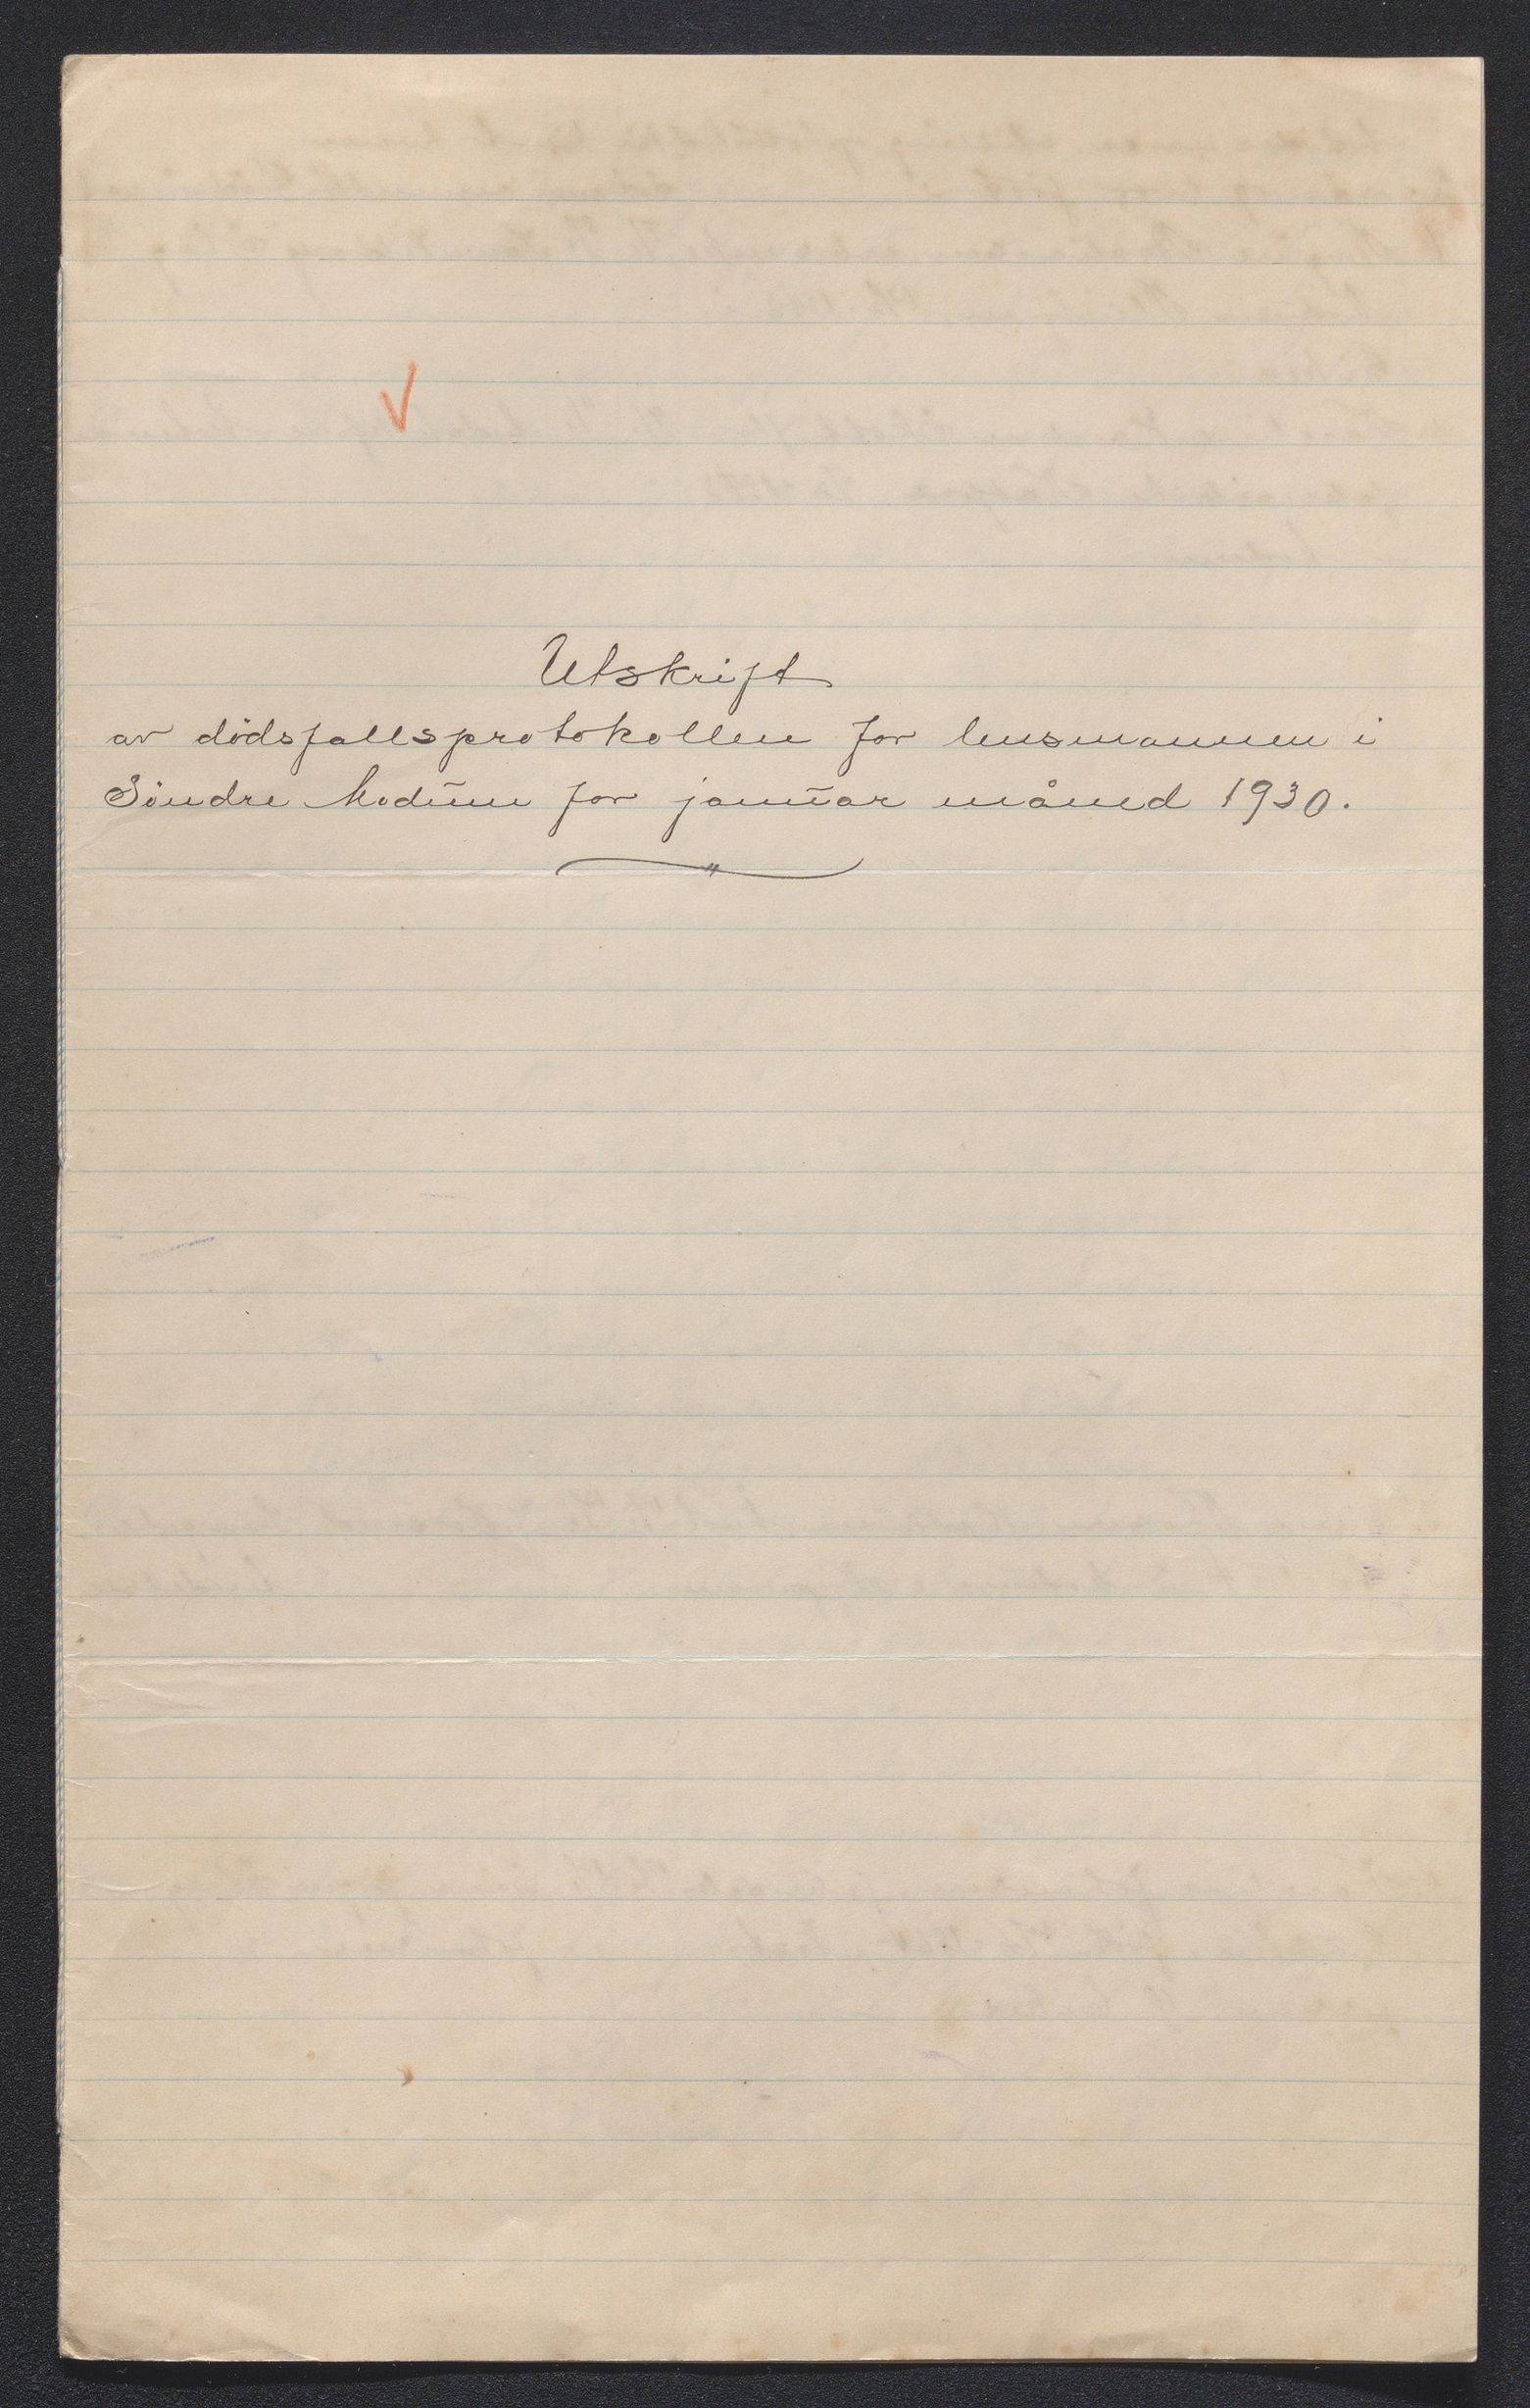 Utskrift
av dödsfallsprotokollen for lensmannen i
Söndre Modum for januar måned 1930.